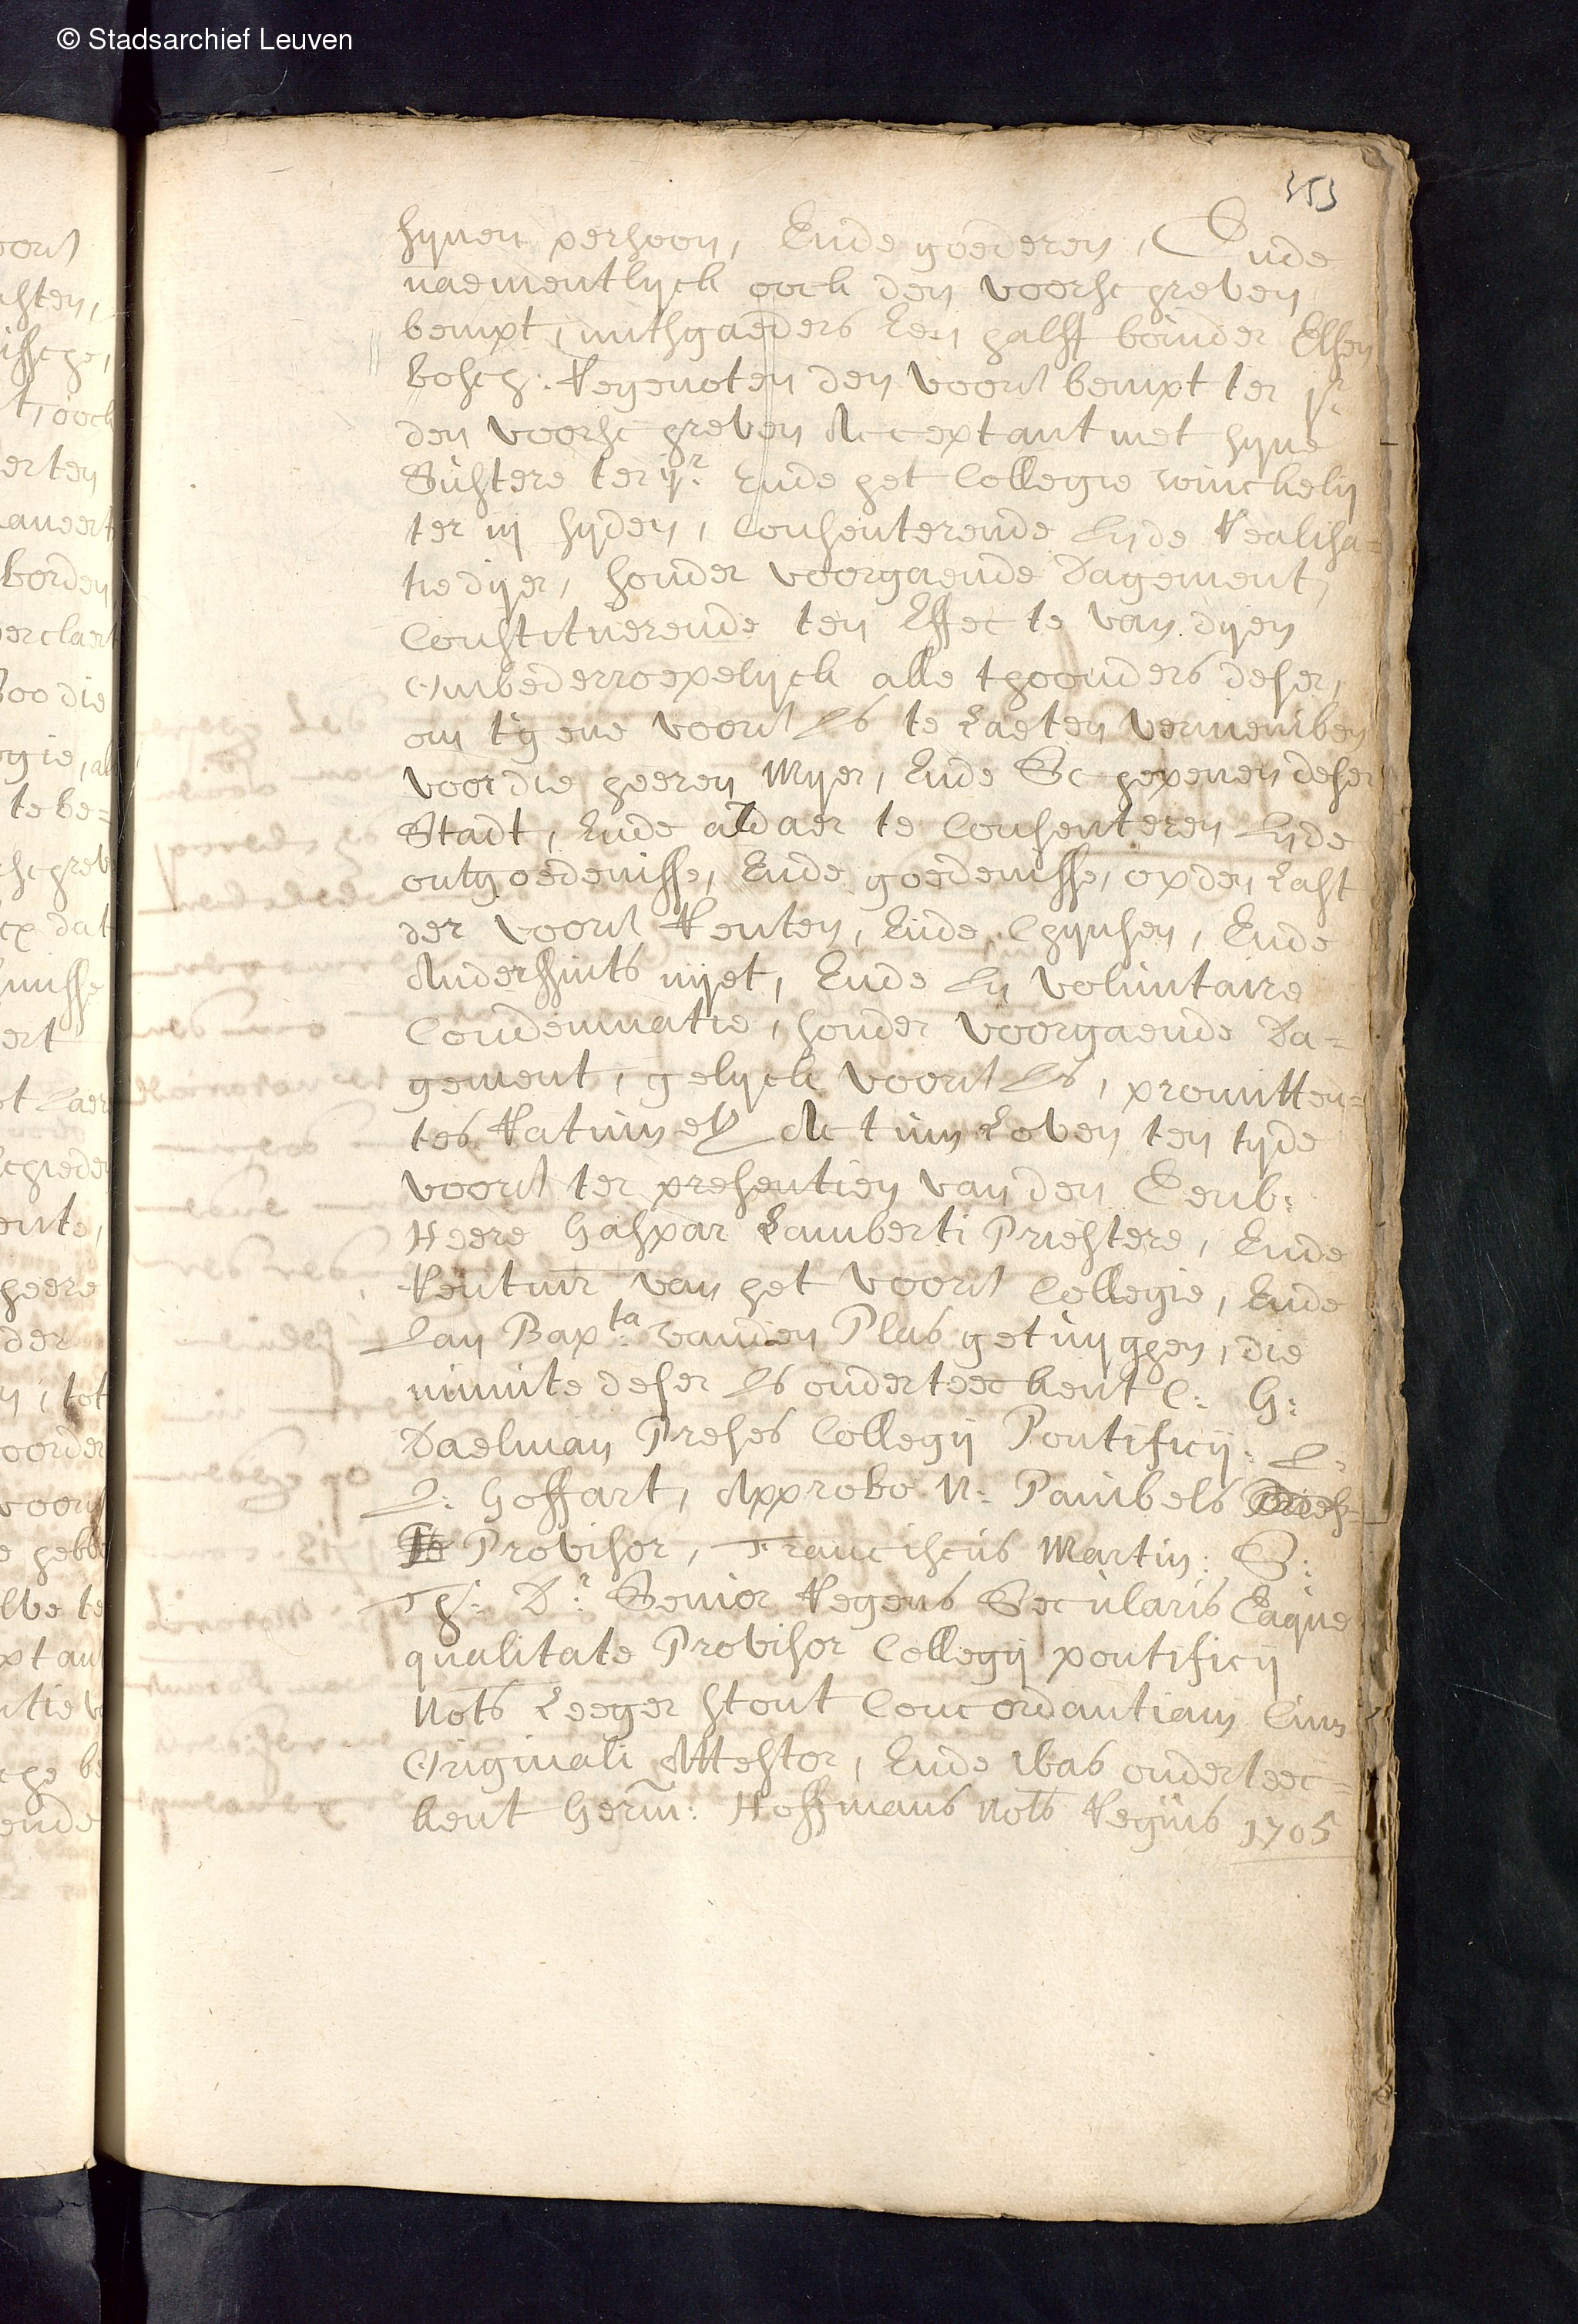 © Stadsarchief Leuven
353
synen persoon, Ende goederen, Ende
naementlyck oock den voorsc greven
bempt, mithgaeders Een halff boinder Elsen
bosch: Regenoten den voors bempt ter jr
den voorsc greven Acceptant met syne
Sustere ter ijr Ende het Collegie winckely
ter iij syden, Consenterende In de Realisa=
tie dyer, sonder voorgaende Dagement
Constituerende ten Effecte van dyen
Onbederroepelyck alle thoonders deser,
om tgene voors Is te Laeten vernieuben
voor die heeren Myer, Ende Schepenen deser
Stadt, Ende aldaer te Consenteren In de
ontgoedenisse, Ende goedenisse, op den Last
der voors Renten, Ende Chynsen, Ende
Anderssints nyet, Ende In voluntaire
Condemnatie, sonder voorgaende Da=
gement, gelyck voors Is, promitten=
tes Ratum etc Actum Loven ten tyde
voors ter presentien van den Eerb:
Heere Gaspar Lamberti Priestere, Ende
Rentmr van het voors Collegie, Ende
Jan Bapta vanden Plas getuyghen, die
minute deser Is onderteeckent C: G:
Daelman Preses Collegij Pontificij: L:
J: Goffart, Approbo N: Paubels
Provisor, Franciscus Martin: S:
Th: Dr Senior Regens Secularis Eaque
qualitate Provisor Collegij pontificij
Nots Leeger stont Concordantiam Cum
Originali Attestor, Ende was onderteec=
kent Germ: Hoffmans Nots Regius 1705